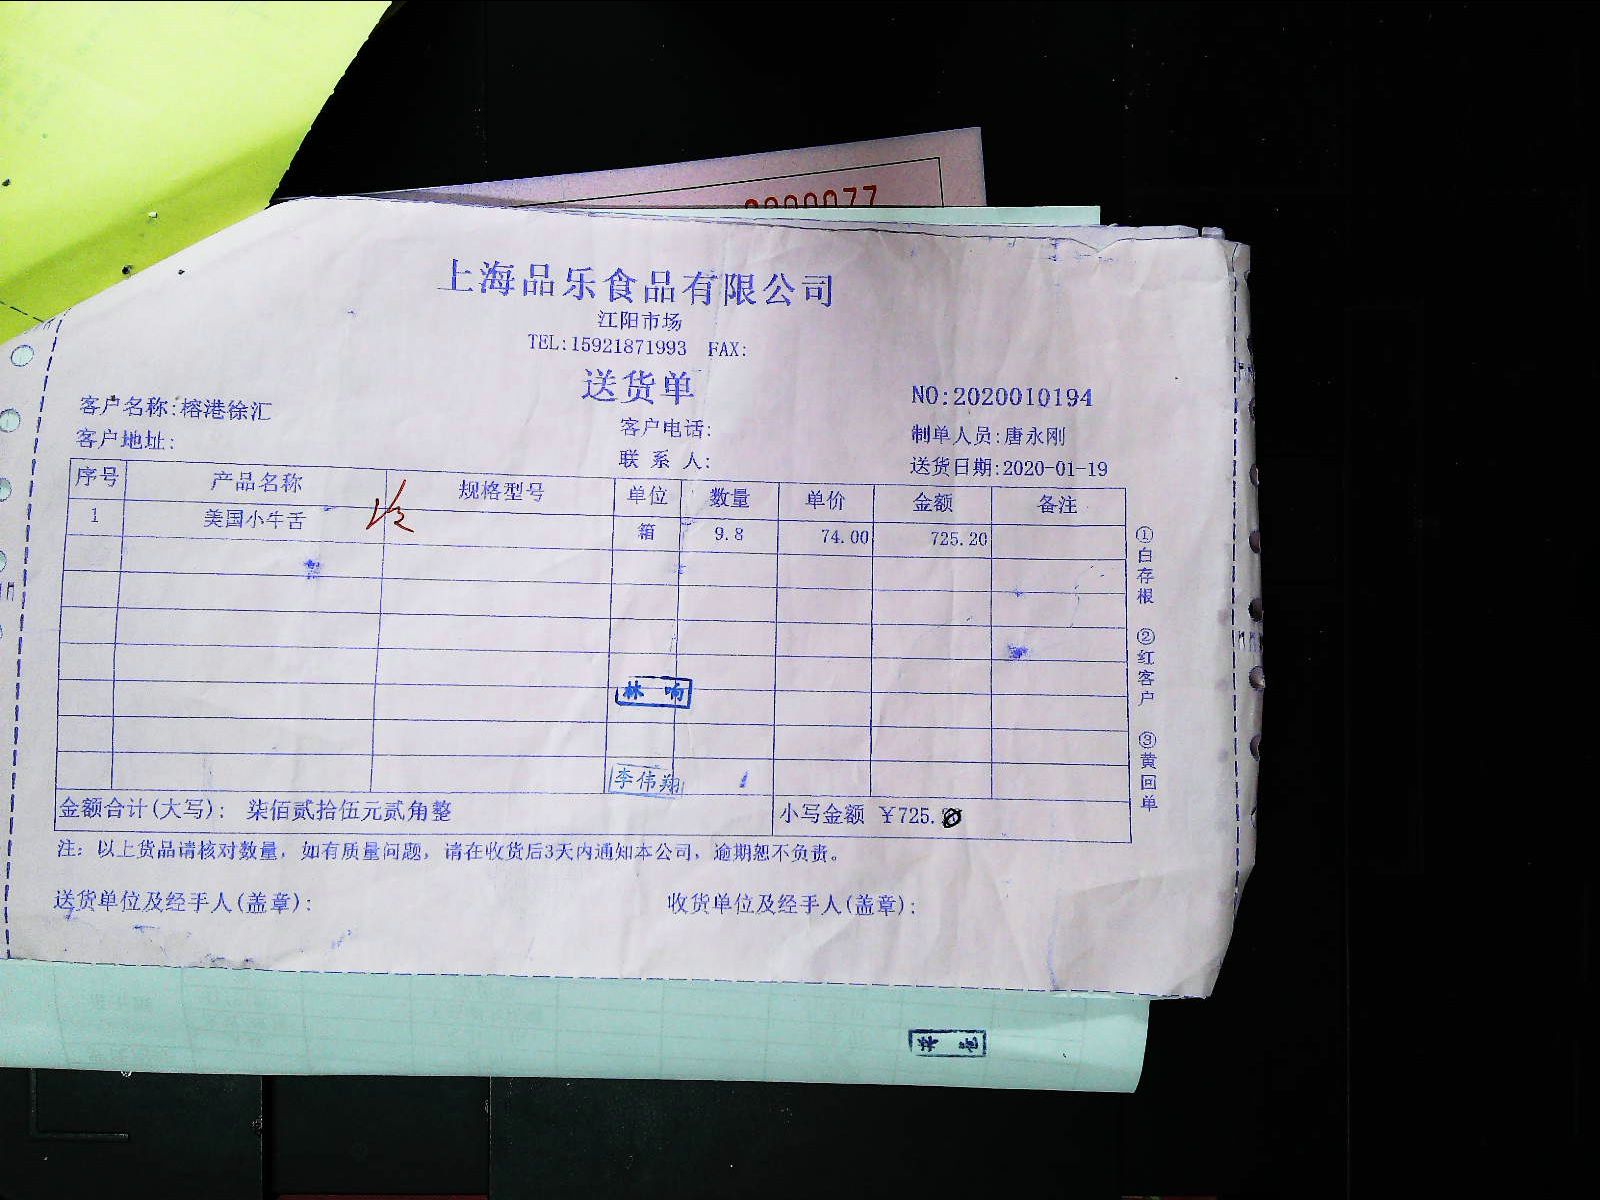 上海品乐食品有限公司
江阳市场
TEL:15921871993 FAX:
送货单
NO:2020010194
客户名称:榕港徐汇
客户电话:
制单人员:唐永刚
客户地址:
联 系 人:
送货日期:2020-01-19
序号 产品名称 规格型号 单位 数量 单价 金额 备注
1 美国小牛舌 箱 9.8 74.00 725.20
①白存根 ②红客户 ③黄回单
林 响
李伟翔
金额合计(大写): 柒佰贰拾伍元贰角整 小写金额 ¥725.
注: 以上货品请核对数量, 如有质量问题, 请在收货后3天内通知本公司, 逾期恕不负责。
送货单位及经手人(盖章): 收货单位及经手人(盖章):